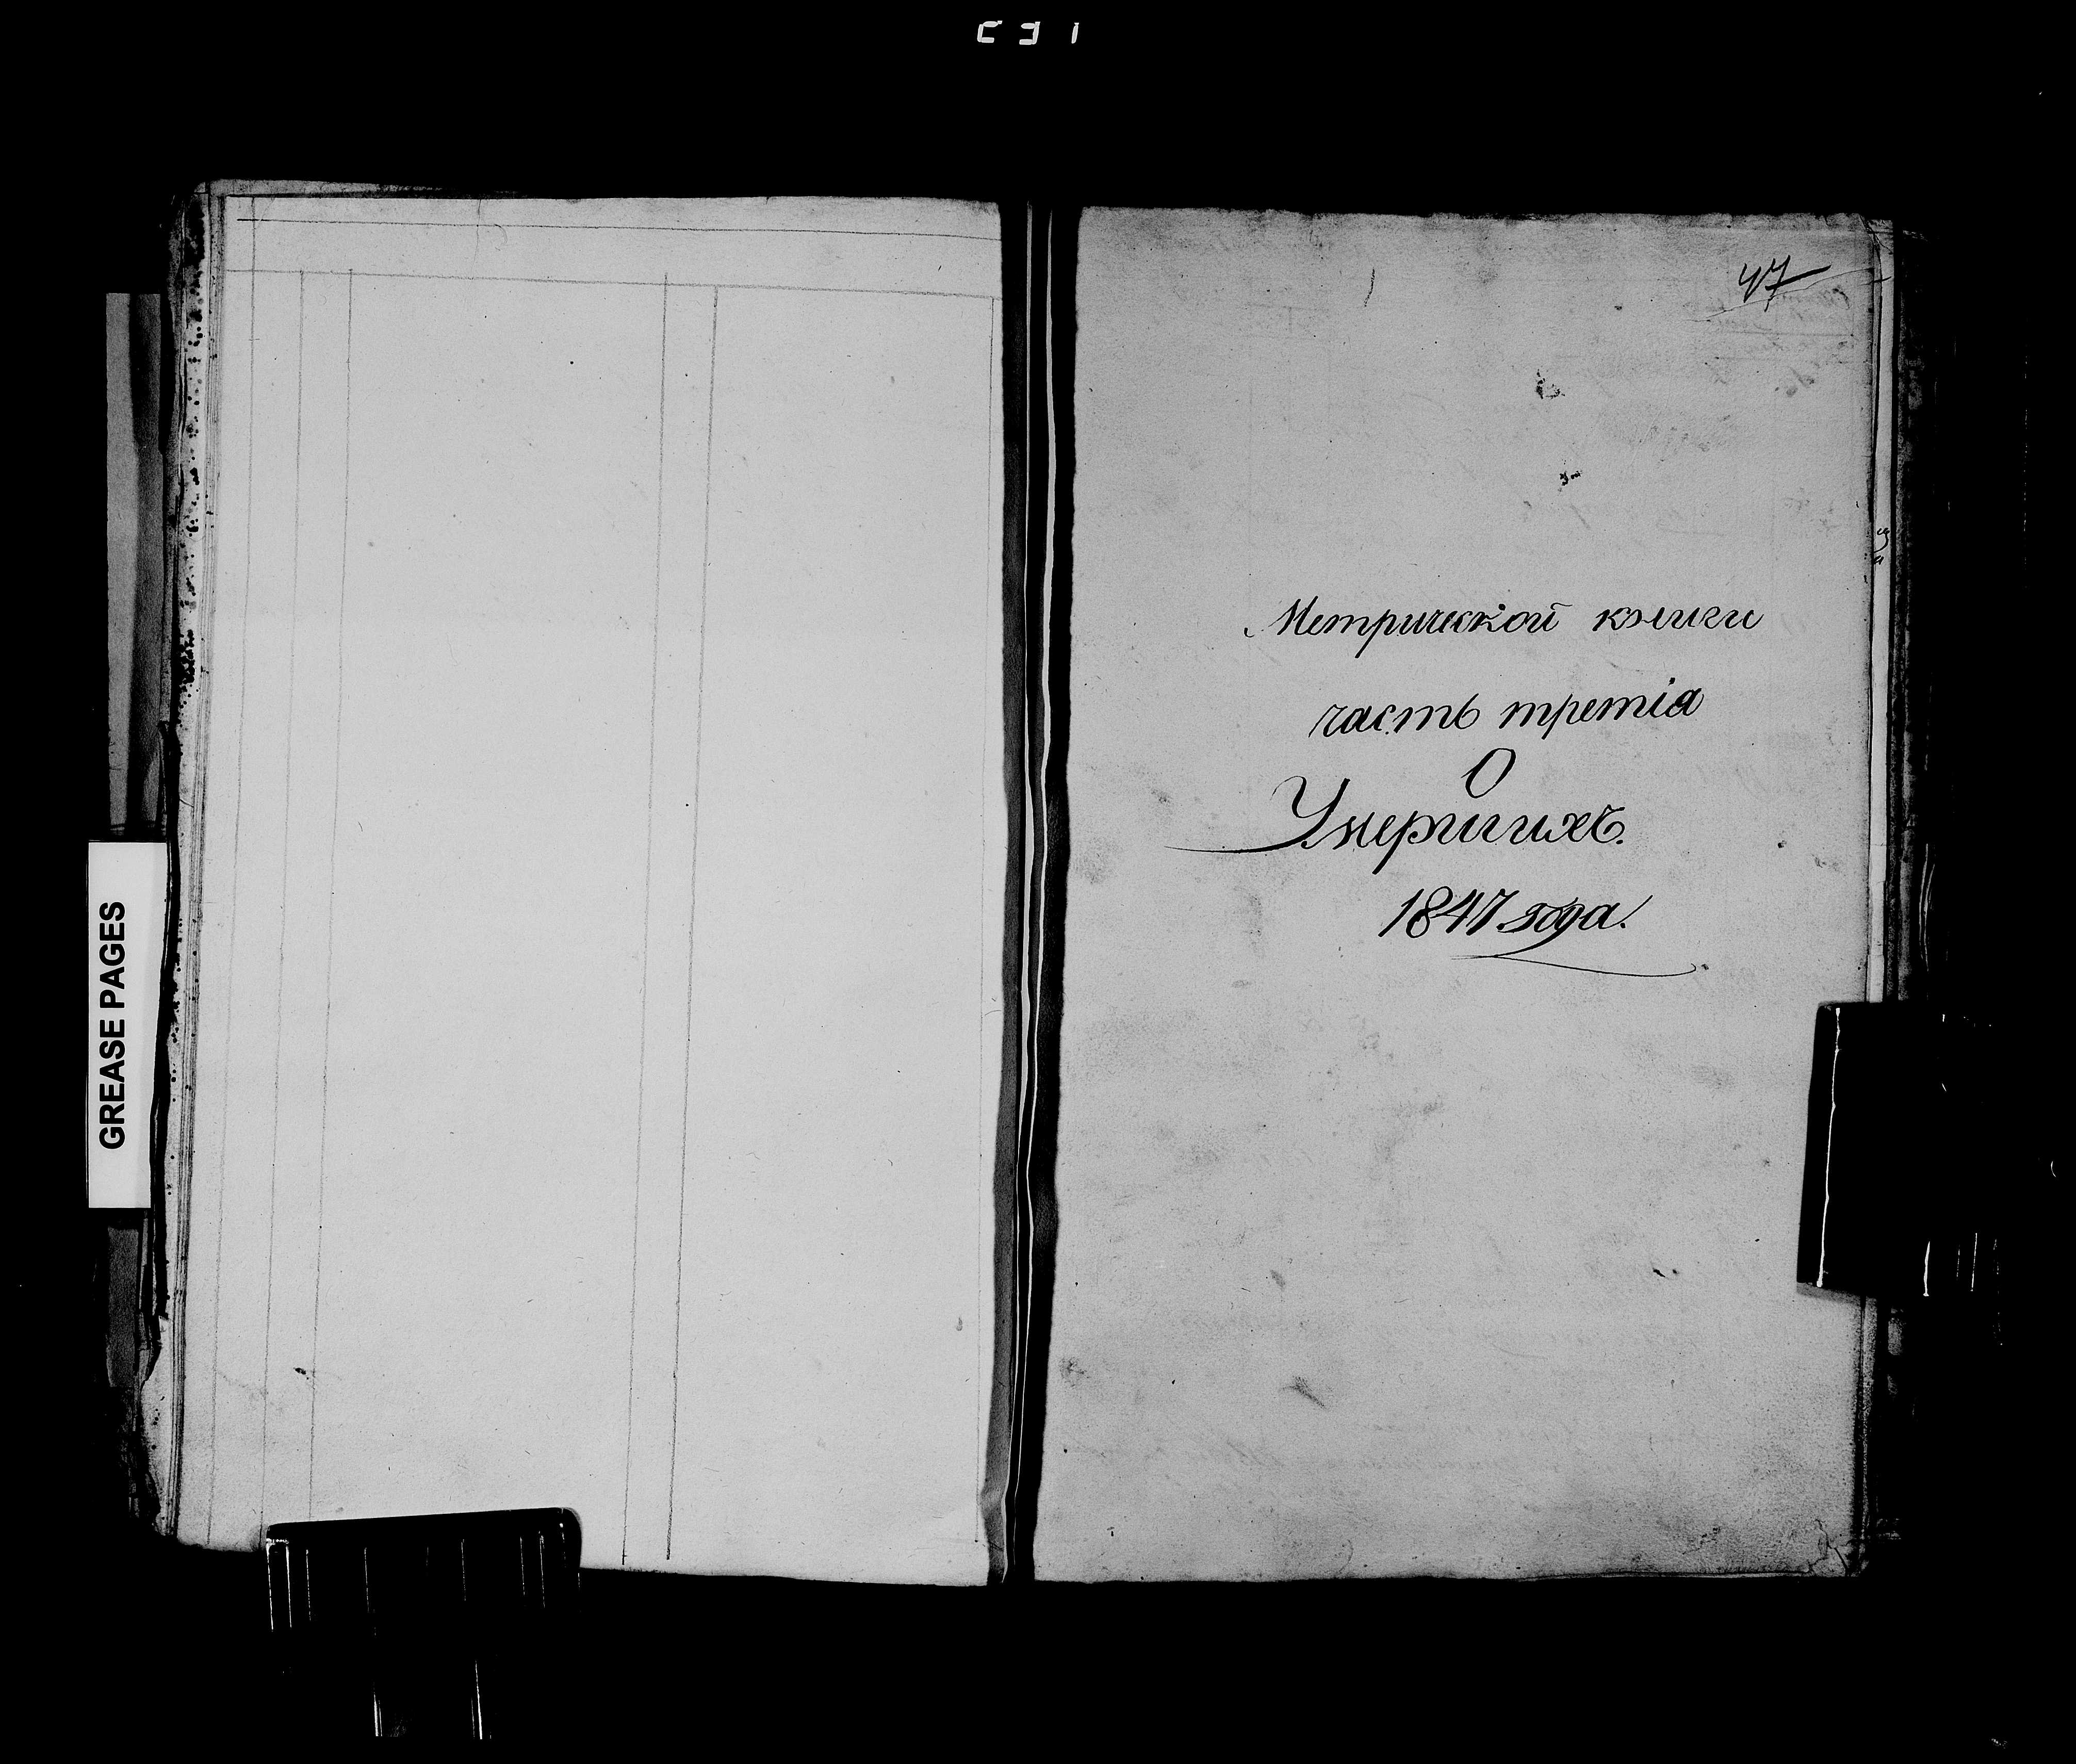 47
Метрической книги
часть третіа
О
Умершихъ.
1847 года.
GREASE PAGES